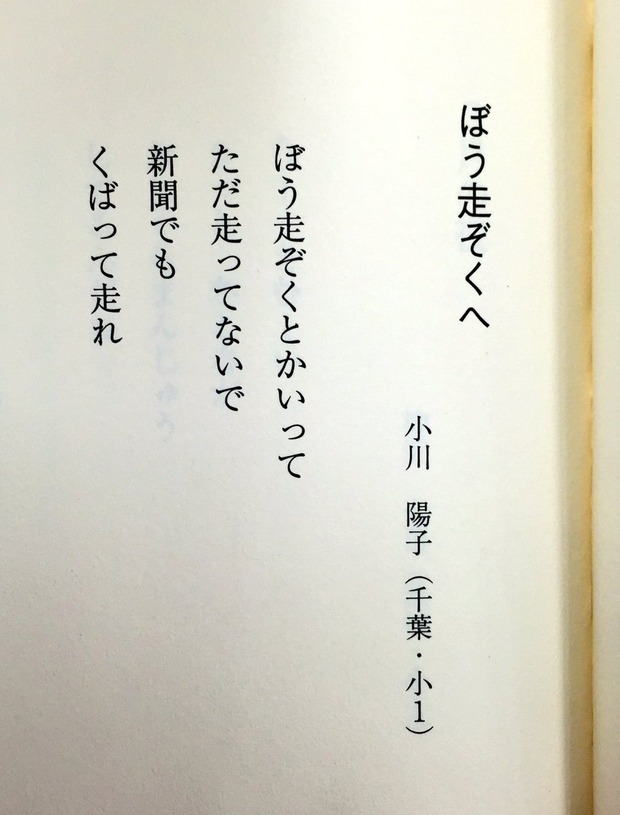 ぼう走ぞくへ
小川　陽子（千葉・小1）
ぼう走ぞくとかいって
ただ走ってないで
新聞でも
くばって走れ